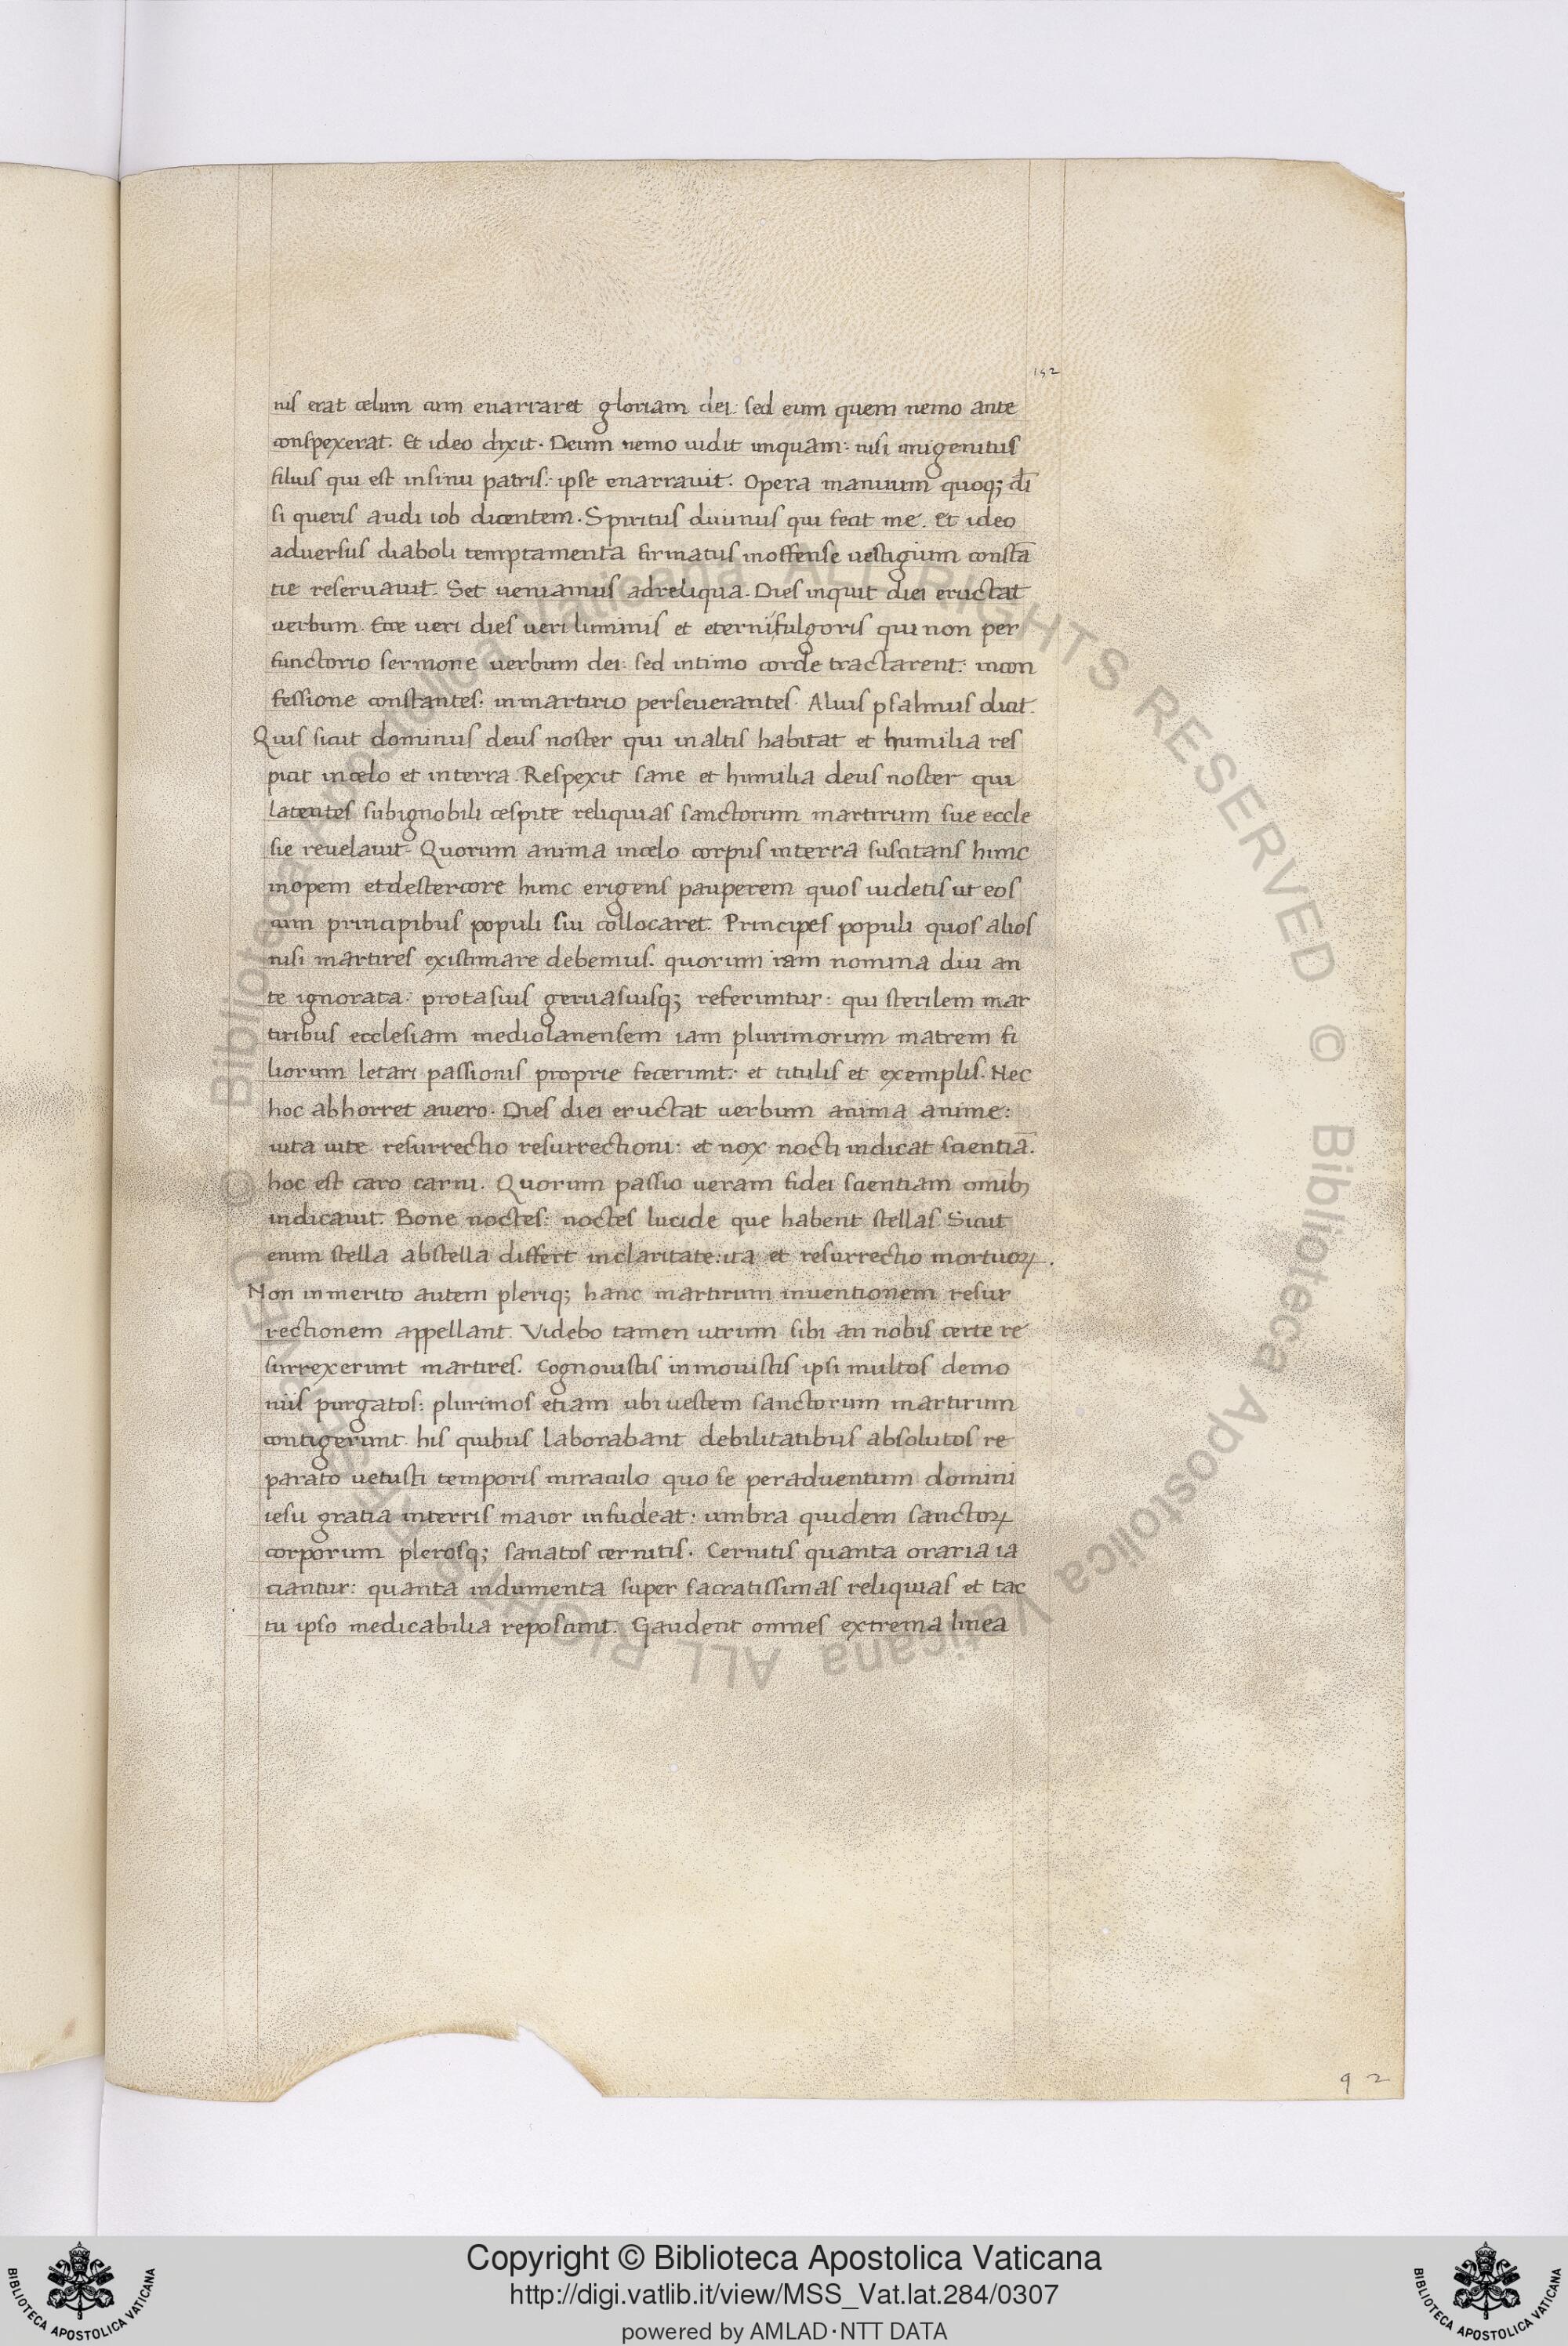 152
nis erat celum cum enarraret gloriam dei: sed eum quem nemo ante
conspexerat. Et ideo dixit. Deum nemo uidit unquam: nisi unigenitus
filius qui est insinu patris: ipse enarrauit. Opera manuum quoq; dī
si queris audi iob dicentem. Spiritus diuinus qui fecit me. Et ideo
aduersus diaboli temptamenta firmatus inoffense uestigium constā
tie reseruauit. Set ueniamus adreliqua. Dies inquit diei eructat
uerbum. Ecce ueri dies ueri luminis et eterni fulgoris qui non per
functorio sermone uerbum dei: sed intimo corde tractarent: incon
fessione constantes: inmartirio perseuerantes. Alius psalmus dicit.
Quis sicut dominus deus noster qui inaltis habitat et humilia res
picit incelo et interra. Respexit sane et humilia deus noster qui
latentes subignobili cespite reliquias sanctorum martirum sue eccle
sie reuelauit. Quorum anima incelo corpus interra suscitans hunc
inopem etdestercore hunc erigens pauperem quos uidetis ut eos
cum principibus populi sui collocaret. Principes populi quos alios
nisi martires existimare debemus. quorum iam nomina diu an
te ignorata: protasius geruasiusq; referuntur: qui sterilem mar
tiribus ecclesiam mediolanensem iam plurimorum matrem fi
liorum letari passionis proprie fecerunt: et titulis et exemplis. Nec
hoc abhorret auero. Dies diei eructat uerbum anima anime:
uita uite. resurrectio resurrectioni: et nox nocti indicat scientiā.
hoc est caro carni. Quorum passio ueram fidei scientiam omnibꝫ
indicauit. Bone noctes: noctes lucide que habent stellas. Sicut
enim stella abstella differt inclaritate: ita et resurrectio mortuoꝝ.
Non inmerito autem pleriq; hanc martirum inuentionem resur
rectionem appellant. Videbo tamen utrum sibi an nobis certe re
surrexerunt martires. Cognouistis inmouistis ipsi multos demo
niis purgatos: plurimos etiam ubi uestem sanctorum martirum
contigerunt. his quibus laborabant debilitatibus absolutos re
parato uetusti temporis miraculo quo se peraduentum domini
iesu gratia interris maior infudeat: umbra quidem sanctoꝝ
corporum plerosq; sanatos cernitis. Cernitis quanta oraria ia
ciantur: quanta indumenta super sacratissimas reliquias et tac
tu ipso medicabilia reposcunt. Gaudent omnes extrema linea
92
© Biblioteca Apostolica Vaticana ALL RIGHTS RESERVED © Biblioteca Apostolica Vaticana ALL RIGHTS RESERVED
Copyright © Biblioteca Apostolica Vaticana
http://digi.vatlib.it/view/MSS_Vat.lat.284/0307
powered by AMLAD·NTT DATA
BIBLIOTECA APOSTOLICA VATICANA
BIBLIOTECA APOSTOLICA VATICANA